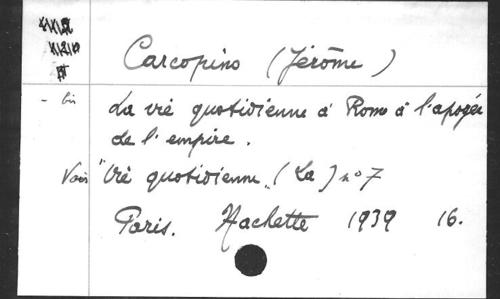 Carcopino (Jérôme)
- bis La vie quotidienne à Rome à l'apogée
de l'empire.
Voir "Vie quotidienne" (La) n° 7
Paris. Hachette 1939 16.